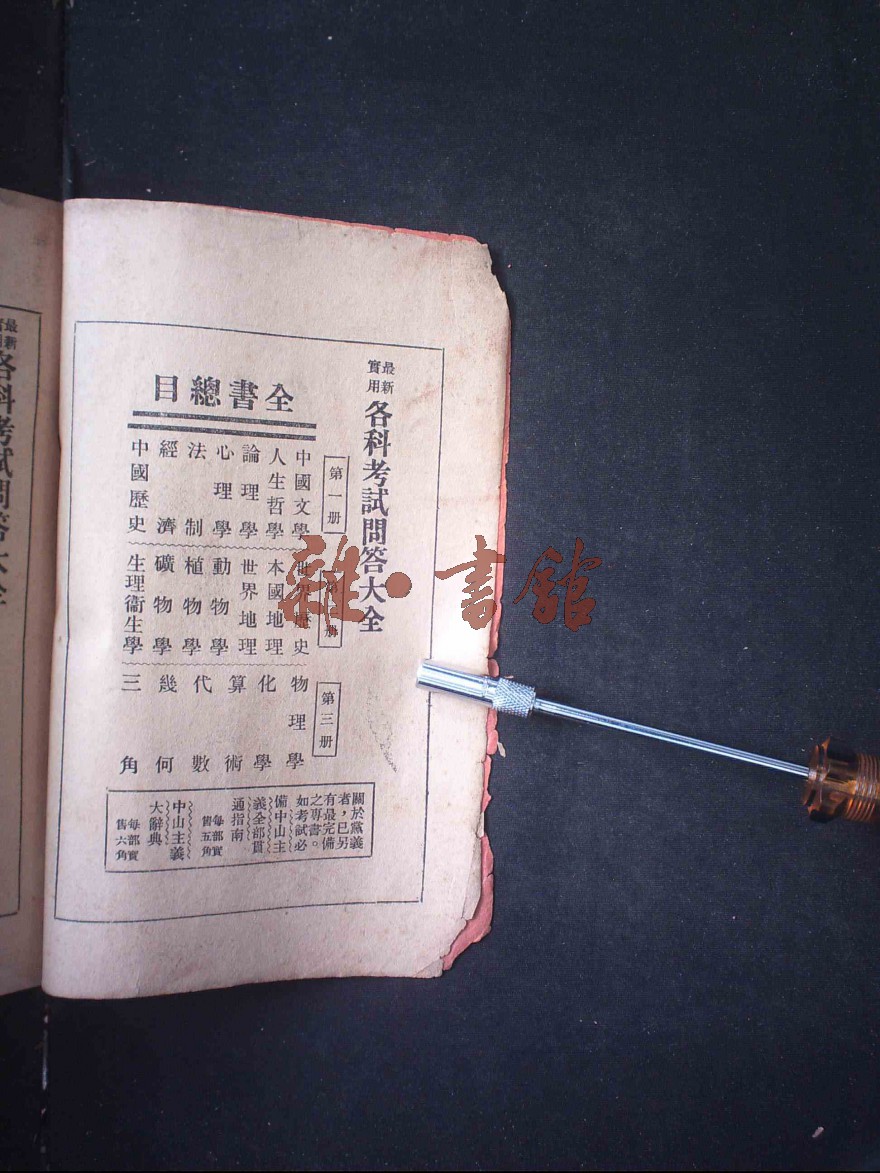 最新
實用
各科考試問答大全
全書總目
第一册
中國文學
人生哲學
論理學
心理學
法制
經濟
中國歷史
第二册
世界歷史
本國地理
世界地理
動物學
植物學
礦物學
生理衞生學
第三册
物理學
化學
算術
代數
幾何
三角
關於黨義
者，已另
有最完備
之專書。
如考試必
備中山主
義全部貫
通指南
每部實
售五角
中山主義
大辭典
每部實
售六角
雜·書館
最新
各科考試問答大全